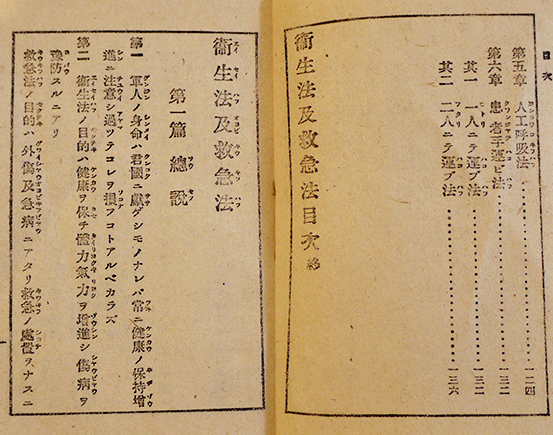 目次
第五章 人工呼吸法‥‥‥‥‥‥一二四
第六章 患者手運ビ法‥‥‥‥‥‥一三二
其一 一人ニテ運ブ法‥‥‥‥‥‥一三二
其二 二人ニテ運ブ法‥‥‥‥‥‥一三六
衞生法及救急法目次 終
衞生法及救急法
第一篇 總說
第一 軍人ノ身命ハ君國ニ獻ゲシモノナレバ常ニ健康ノ保持增
進ニ注意シ過ツテコレヲ損フコトアルベカラズ
第二 衞生法ノ目的ハ健康ヲ保チ體力氣力ヲ增進シ傷病ヲ
豫防スルニアリ
救急法ノ目的ハ外傷及急病ニアタリ救急ノ處置ヲナスニ